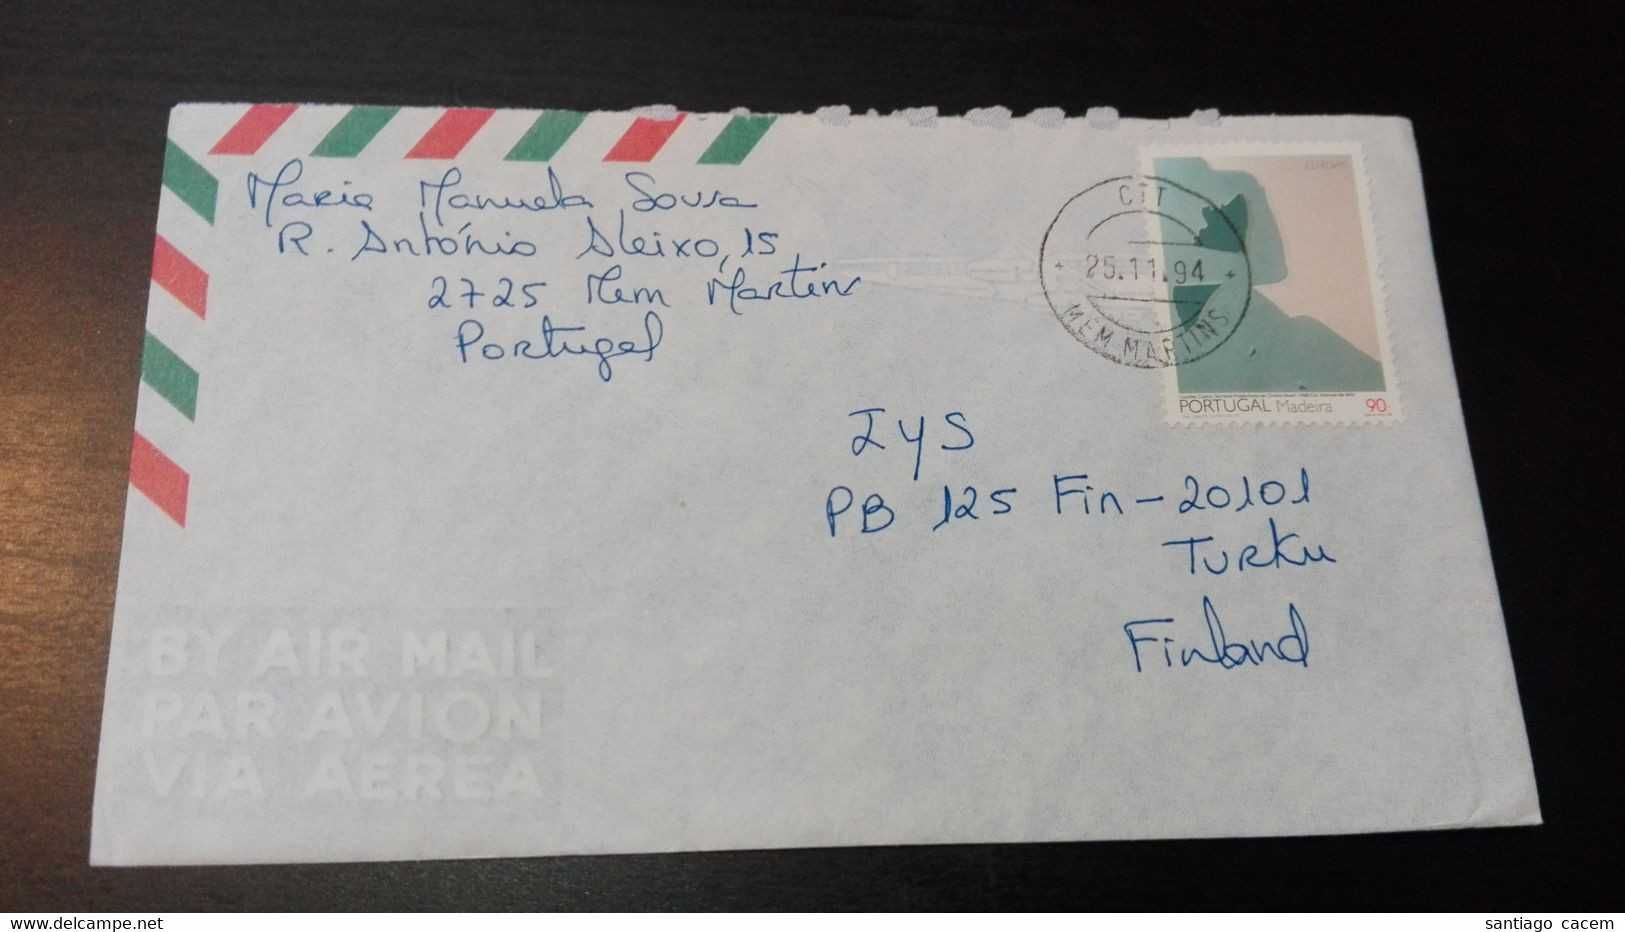 Maria Manuela Sousa
R. António Aleixo, 15
2725 Mem Martins
Portugal
EUROPA
CTT
25.11.94
MEM MARTINS
PORTUGAL Madeira 90
IYS
PB 125 Fin-20101
Turku
Finland
BY AIR MAIL
PAR AVION
VIA AEREA
delcampe.net
santiago cacem